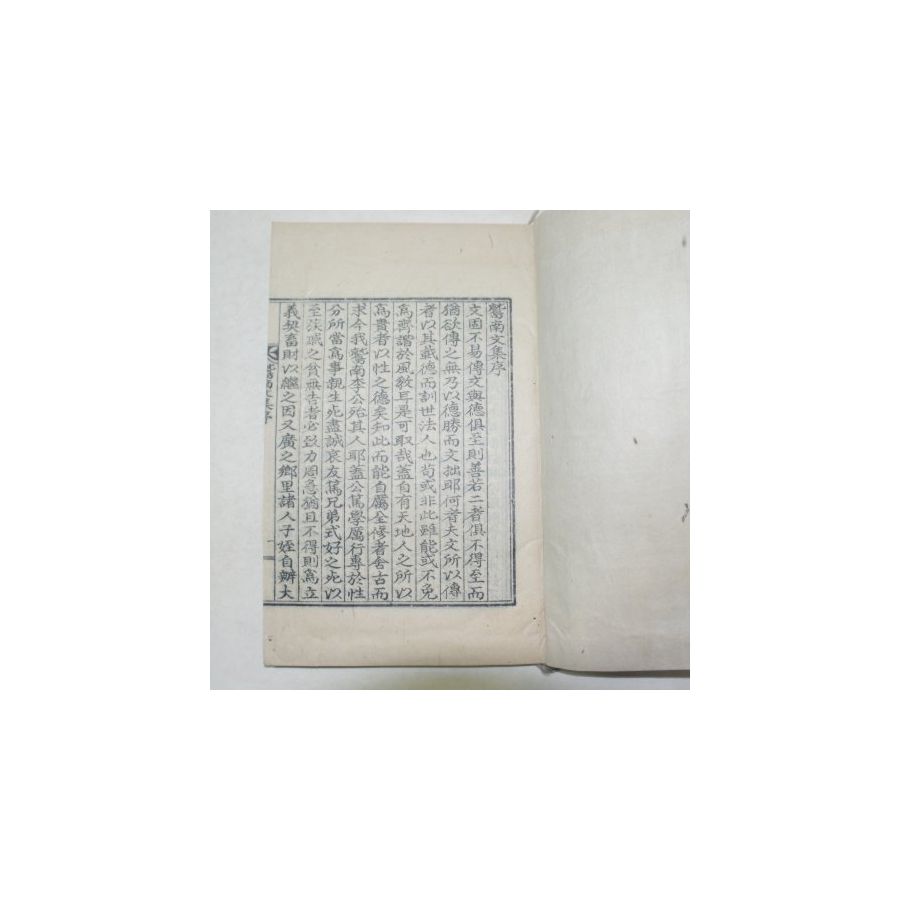 鷲南文集序
文固不易傳文與德俱至則善若二者俱不得至而
猶欲傳之無乃以德勝而文拙耶何者夫文所以傳
者以其載德而訓世法人也苟或非此雖能或不免
爲齊諧於風敎耳是可取哉蓋自有天地人之所以
爲貴者以性之德矣知此而能自厲全修者舍古而
求今我鷲南李公殆其人耶蓋公篤學厲行專於性
分所當爲事親生死盡誠哀友篤兄弟式好之死以
至茨戚之貧無告者必致力周急猶且不得則爲立
義契畜財以繼之因又廣之鄕里諸人子姪自辦大
鷲南文集序
一